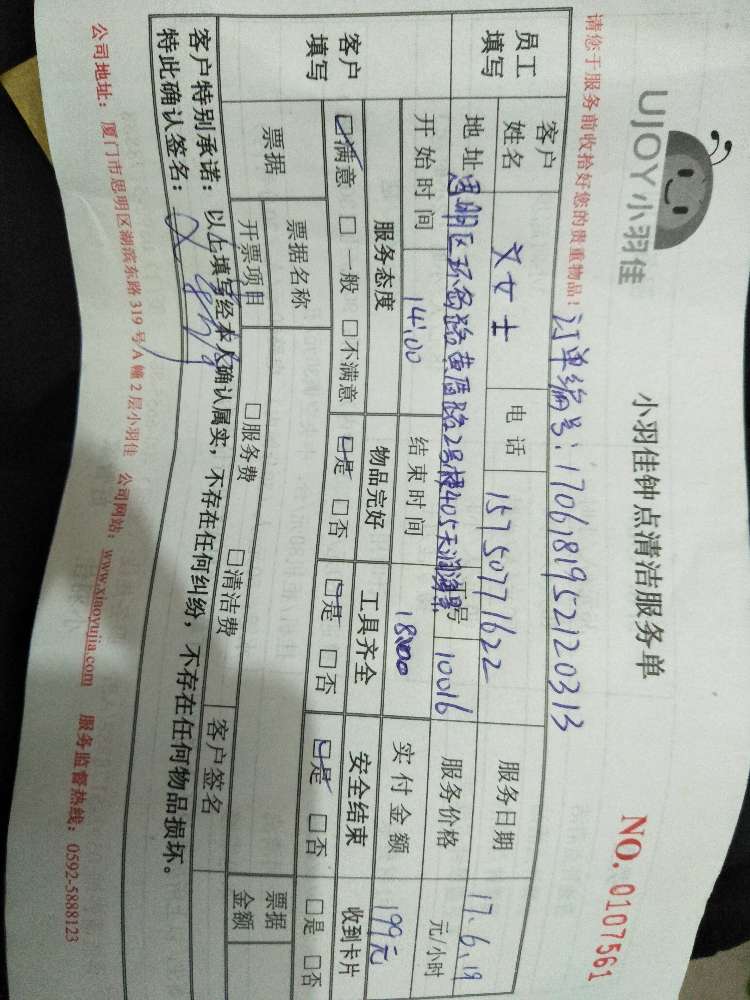 UJOY小羽佳
小羽佳钟点清洁服务单
NO. 0107561
请您于服务前收拾好您的贵重物品！
订单编号：1706181952120313
员工填写
客户姓名 女士 电话 15750771622 服务日期 17.6.19
地址 思明区环岛路黄厝路2号楼405天润海景 工号 10016 服务价格 元/小时
开始时间 14:00 结束时间 18:00 实付金额 199元
客户填写
服务态度 物品完好 工具齐全 安全结束 收到卡片
☑满意 □一般 □不满意 ☑是 □否 ☑是 □否 ☑是 □否 □是 □否
票据 票据名称 票据金额
开票项目 □服务费 □清洁费 客户签名
客户特别承诺：以上填写经本人确认属实，不存在任何纠纷，不存在任何物品损坏。
特此确认签名：
公司地址：厦门市思明区湖滨东路319号A幢2层小羽佳 公司网站：www.xiaoyujia.com 服务监督热线：0592-5888123